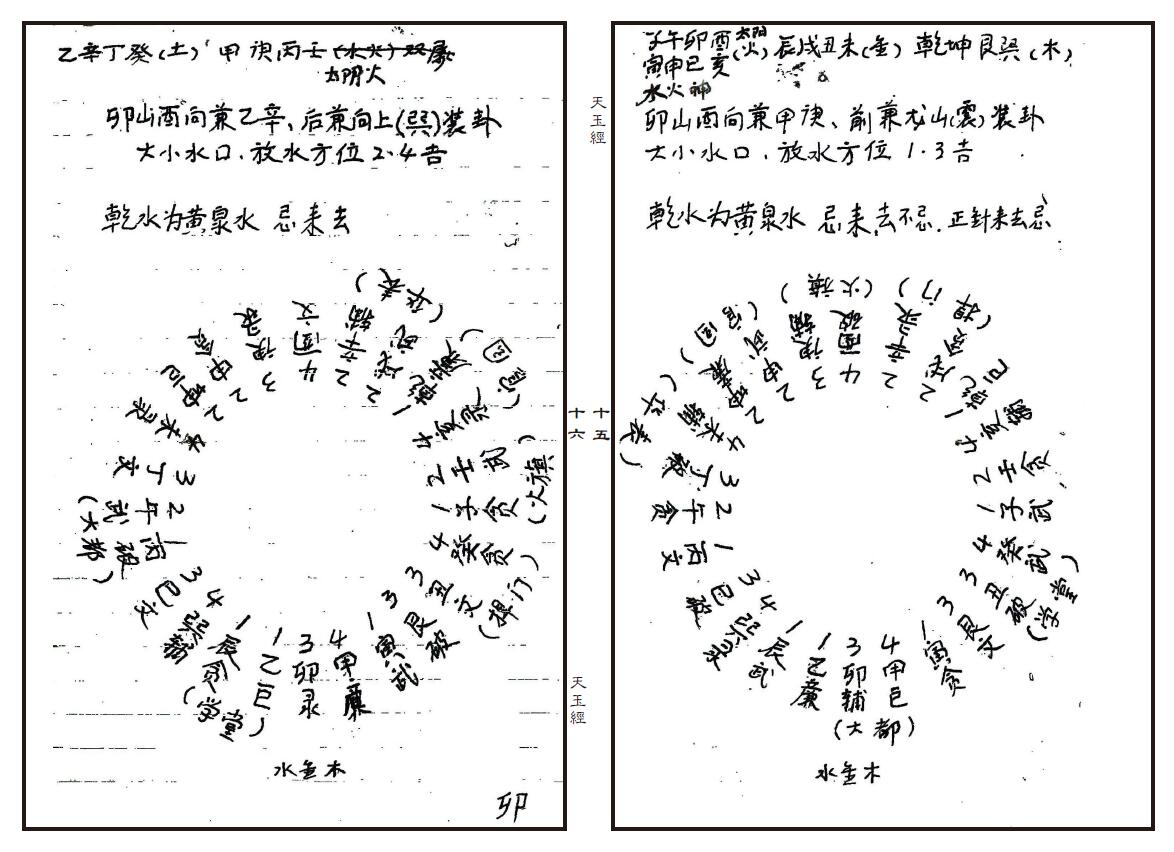 子午卯酉太阳(火) 辰戌丑未(金) 乾坤艮巽(木)
寅申巳亥
水火神
卯山酉向兼甲庚、前兼龙山(震)装卦
大小水口、放水方位1·3吉
乾水为黄泉水 忌来去不忌 正針来去忌
4甲巨
1寅贪
3艮文
3丑破(学堂)
4癸武
1子武
2壬贪
4亥
1乾巨
2戌
2辛录
4酉破
3庚辅(火旗)
2申武
2坤廉
4未辅(华表)
3丁破
2午贪
1丙文
3巳破
4巽录
1辰武
1乙廉
3卯辅(大都)
水金木
天玉經
十五
乙辛丁癸(土) 甲庚丙壬
太阴火
卯山酉向兼乙辛、后兼向上(巽)装卦
大小水口、放水方位2·4吉
乾水为黄泉水 忌来去
4甲廉
1寅武
3艮破
3丑文
4癸贪
1子贪
2壬武(火旗)
4亥录
1乾廉
2戌武
2辛辅(华表)
4酉文
3庚录
2申
2坤巨
未
3丁文
2午武(大都)
1丙破
3巳文
4巽辅
1辰贪(学堂)
1乙巨
3卯录
水金木
卯
天玉經
十六